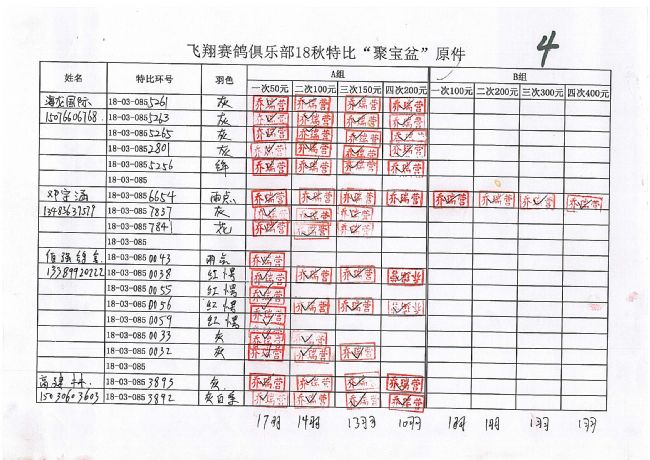 飞翔赛鸽俱乐部18秋特比“聚宝盆”原件 4
姓名 特比环号 羽色 A组 B组
一次50元 二次100元 三次150元 四次200元 一次100元 二次200元 三次300元 四次400元
海龙国际 18-03-0855261 灰 乔瑞营 乔瑞营 乔瑞营 乔瑞营
15076606768 18-03-0855263 灰 乔瑞营 乔瑞营 乔瑞营 乔瑞营
18-03-0855265 灰 乔瑞营 乔瑞营 乔瑞营 乔瑞营
18-03-0852801 灰 乔瑞营 乔瑞营 乔瑞营 乔瑞营
18-03-0855256 绛 乔瑞营 乔瑞营 乔瑞营 乔瑞营
18-03-085
邓宇涵 18-03-0856654 雨点 乔瑞营 乔瑞营 乔瑞营 乔瑞营 乔瑞营 乔瑞营 乔瑞营 乔瑞营
18-03-0857837 灰 乔瑞营 乔瑞营 乔瑞营
18-03-0857841 花 乔瑞营 乔瑞营 乔瑞营
18-03-085
18-03-0850043 雨点 乔瑞营
13389920222 18-03-0850038 红 乔瑞营 乔瑞营 乔瑞营 乔瑞营
18-03-0850055 红 乔瑞营
18-03-0850056 红 乔瑞营 乔瑞营 乔瑞营 乔瑞营
18-03-0850059 红 乔瑞营
18-03-0850033 灰 乔瑞营 乔瑞营
18-03-0850032 灰 乔瑞营 乔瑞营 乔瑞营
18-03-085
18-03-0853893 灰 乔瑞营 乔瑞营 乔瑞营 乔瑞营
15030603603 18-03-0853892 灰白条 乔瑞营 乔瑞营 乔瑞营 乔瑞营
17羽 14羽 13羽 10羽 1羽 1羽 1羽 1羽